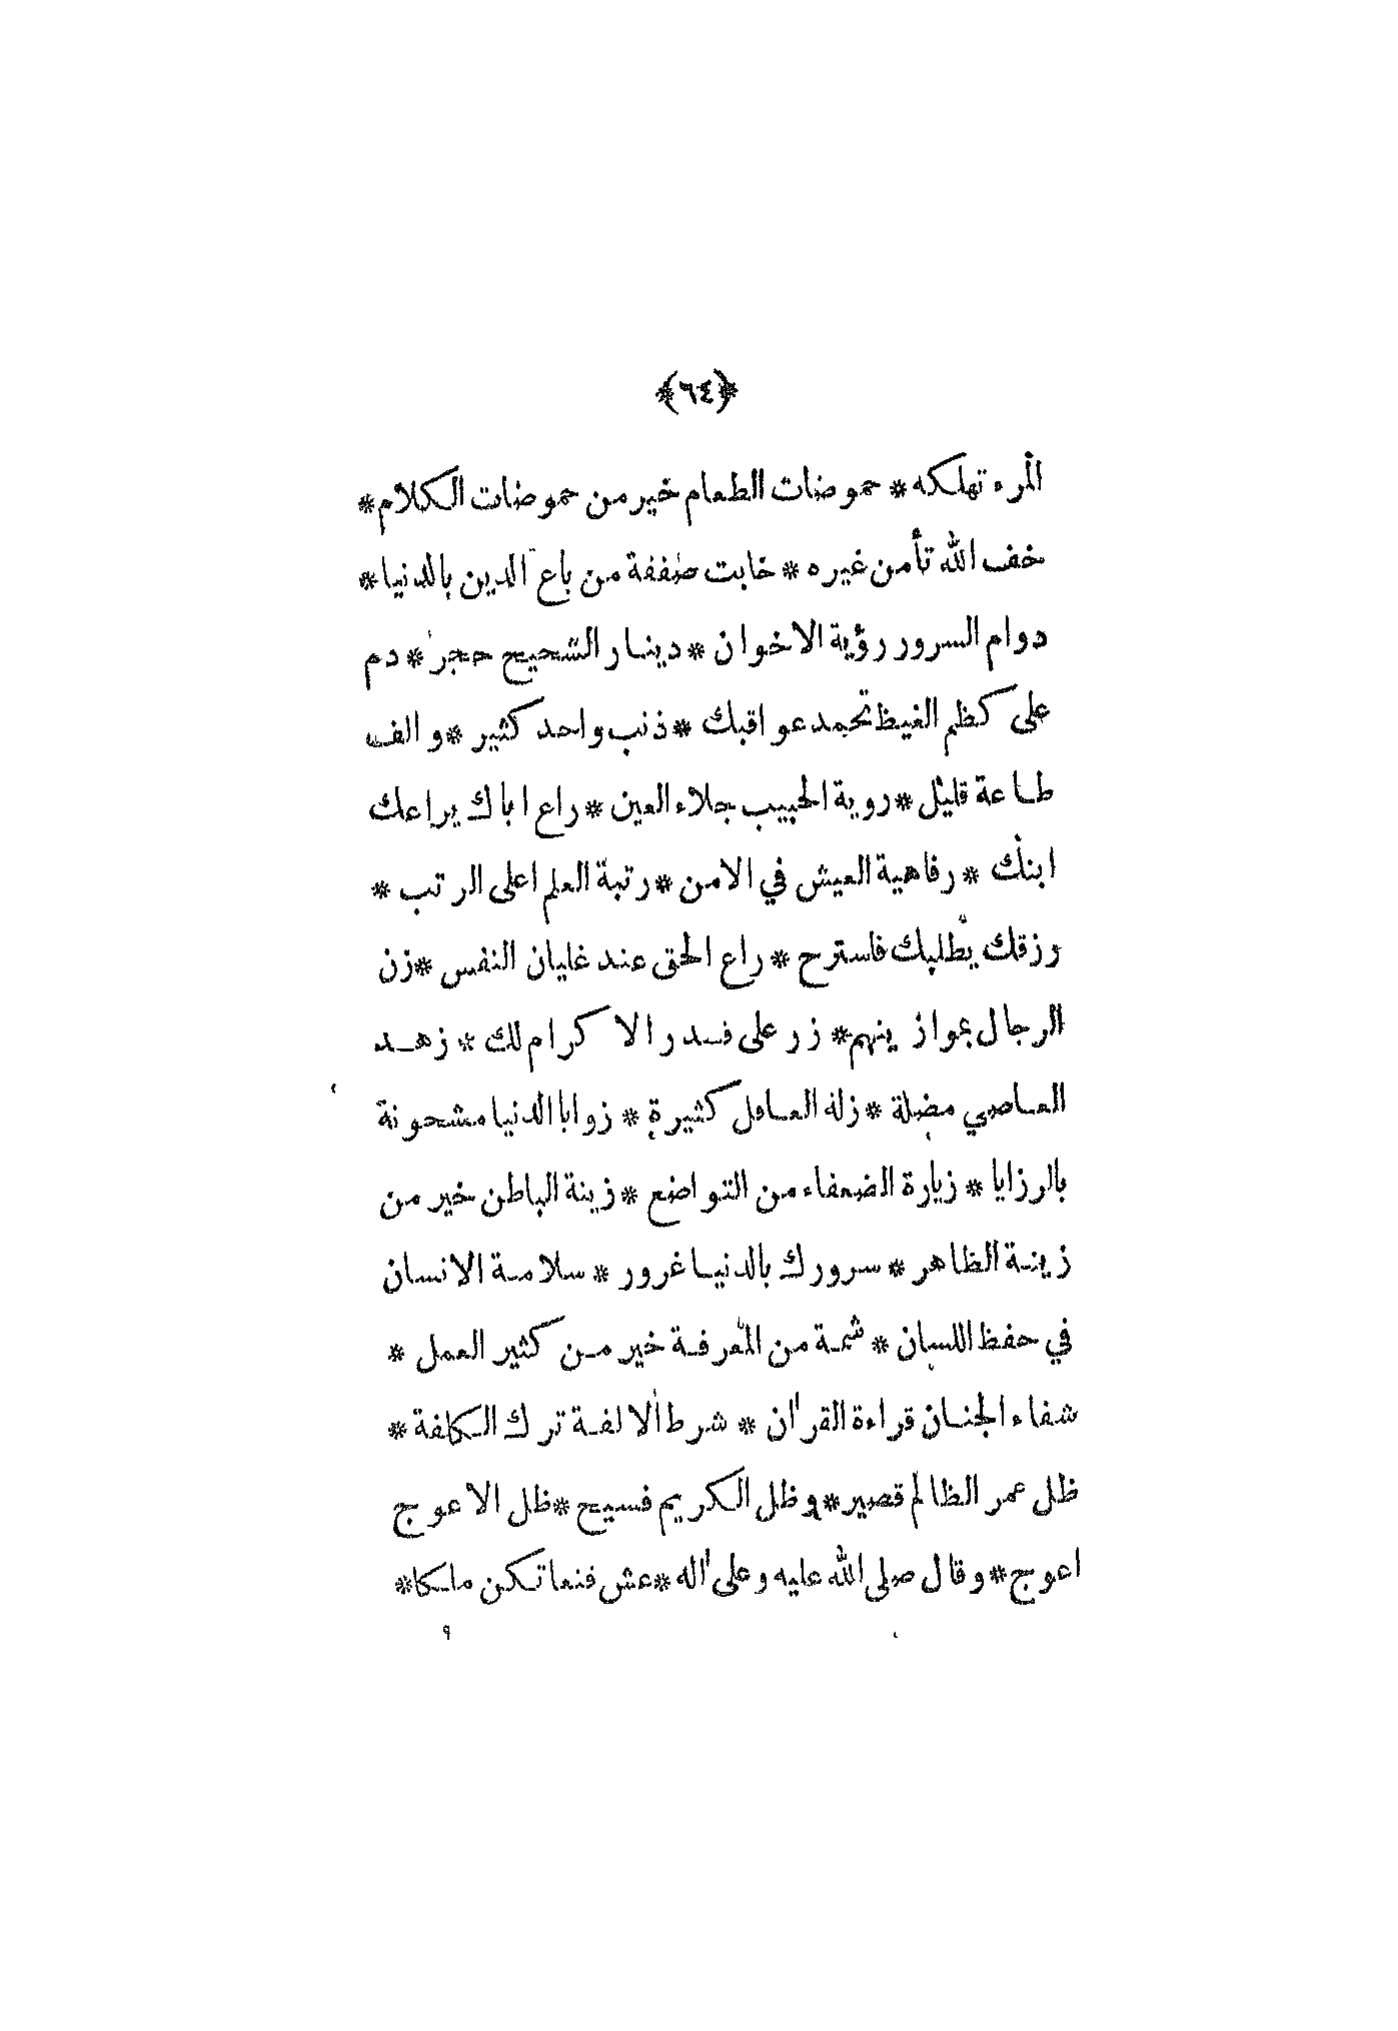 ﴿٦٤﴾
المرء تهلكه * حموضات الطعام خير من حموضات الكلام *
خف الله تأمن غيره * خابت صففة من باع الدين بالدنيا *
دوام السرور رؤية الاخوان * دينار الشحيح حجر * دم
على كظم الغيظ تحمد عواقبك * ذنب واحد كثير * والف
طاعة قليل * روية الحبيب جلاء العين * راع اباك يراعك
ابنك * رفاهية العيش في الامن * رتبة العلم اعلى الرتب *
رزقك يطلبك فاسترح * راع الحق عند غليان النفس * زن
الرجال بموازينهم * زر على فدر الاكرام لك * زهد
العاصي مضلة * زلة العاقل كثيرة * زوايا الدنيا مشحونة
بالرزايا * زيارة الضعفاء من التواضع * زينة الباطن خير من
زينة الظاهر * سرورك بالدنيا غرور * سلامة الانسان
في حفظ اللسان * شمة من المعرفة خير من كثير العمل *
شفاء الجنان قراءة القرأن * شرط الالفة ترك الكلفة *
ظل عمر الظالم قصير * وظل الكريم فسيح * ظل الاعوج
اعوج * وقال صلى الله عليه وعلى أله * عش فنعا تكن ملكا *
٩